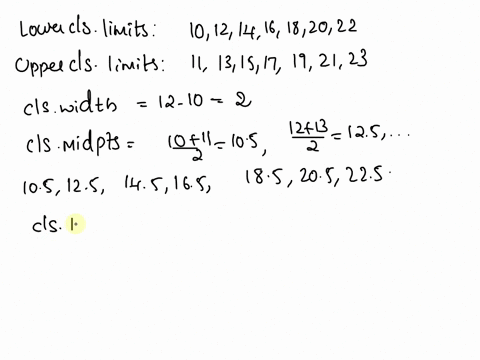 Lower cls. limits: 10, 12, 14, 16, 18, 20, 22
Upper cls. limits: 11, 13, 15, 17, 19, 21, 23
cls. width = 12-10 = 2
cls. midpts = 10+11/2 = 10.5, 12+13/2 = 12.5, ...
10.5, 12.5, 14.5, 16.5, 18.5, 20.5, 22.5.
cls.